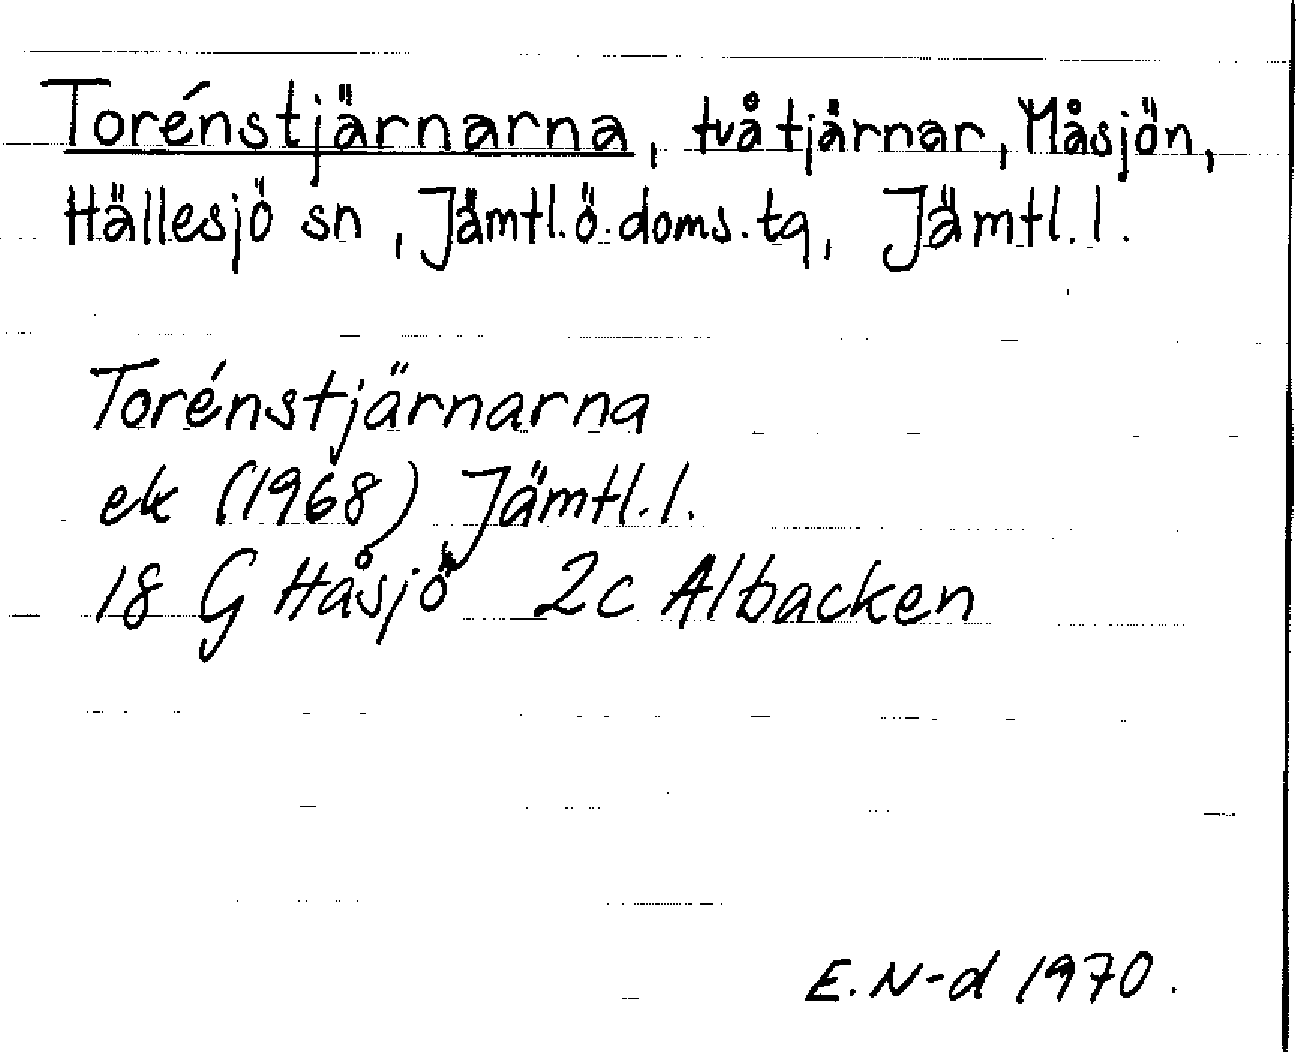 Torénstjärnarna, två tjärnar, Måsjön,
Hällesjö sn, Jämtl. ö. doms. tg, Jämtl. l.
Torénstjärnarna
ek (1968) Jämtl. l.
18 G Håsjö 2c Albacken
E. N-d 1970.